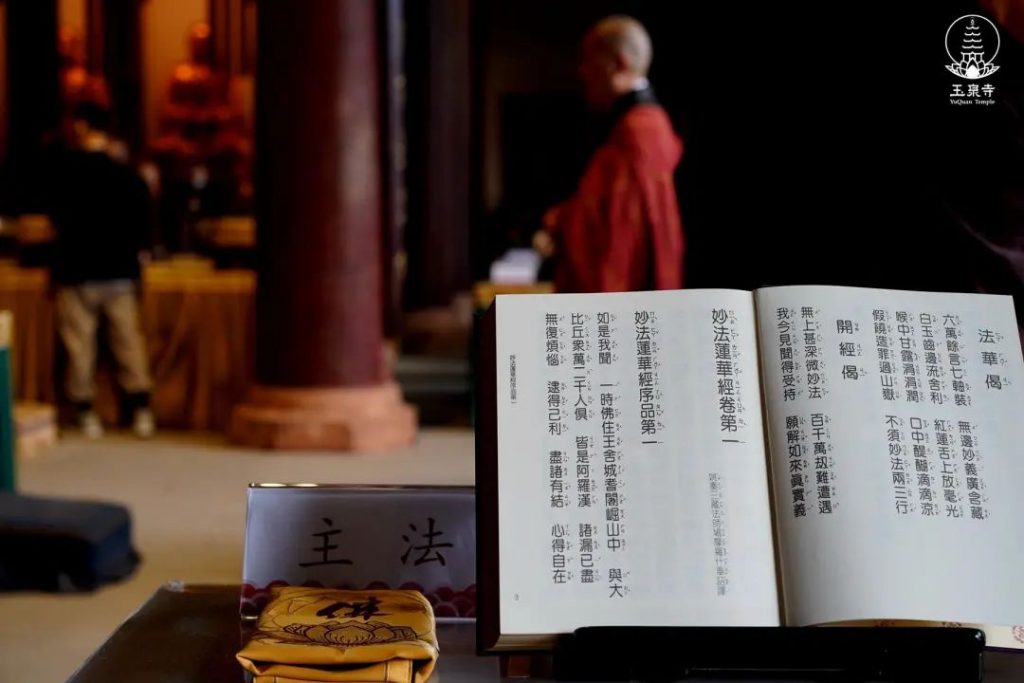 玉泉寺
YuQuan Temple
法華偈
六萬餘言七軸裝　無邊妙義廣含藏
白玉齒邊流舍利　紅蓮舌上放毫光
喉中甘露涓涓潤　口中醍醐滴滴涼
假饒造罪過山嶽　不須妙法兩三行
開經偈
無上甚深微妙法　百千萬劫難遭遇
我今見聞得受持　願解如來真實義
妙法蓮華經卷第一
姚秦三藏法師鳩摩羅什奉詔譯
妙法蓮華經序品第一
如是我聞　一時佛住王舍城耆闍崛山中　與大
比丘衆萬二千人俱　皆是阿羅漢　諸漏已盡
無復煩惱　逮得己利　盡諸有結　心得自在
妙法蓮華經序品第一
主法
佛